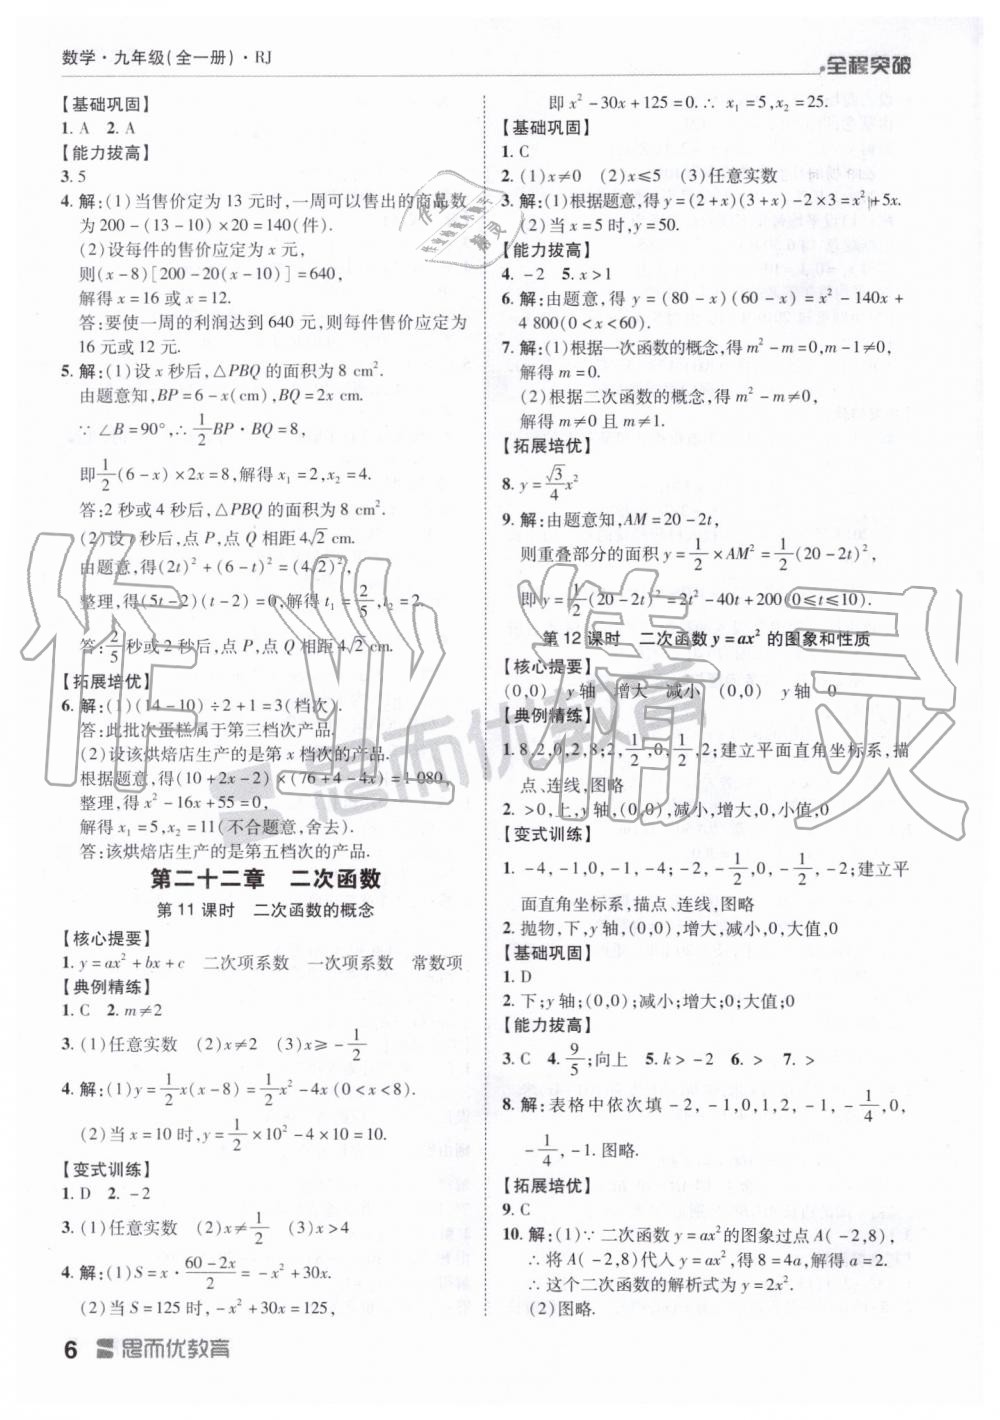 数学·九年级(全一册)·RJ
全程突破
【基础巩固】
1. A  2. A
【能力拔高】
3. 5
4. 解:(1)当售价定为 13 元时,一周可以售出的商品数
为 200-(13-10)×20=140(件).
(2)设每件的售价应定为 x 元,
则(x-8)[200-20(x-10)]=640,
解得 x=16 或 x=12.
答:要使一周的利润达到 640 元,则每件售价应定为
16 元或 12 元.
5. 解:(1)设 x 秒后,△PBQ 的面积为 8 cm².
由题意知,BP=6-x(cm),BQ=2x cm.
∵ ∠B=90°,∴ 1/2 BP·BQ=8,
即 1/2 (6-x)×2x=8,解得 x₁=2,x₂=4.
答:2 秒或 4 秒后,△PBQ 的面积为 8 cm².
(2)设 t 秒后,点 P,点 Q 相距 4√2 cm.
由题意,得(2t)²+(6-t)²=(4√2)²,
整理,得(5t-2)(t-2)=0,解得 t₁=2/5,t₂=2.
答:2/5 秒或 2 秒后,点 P,点 Q 相距 4√2 cm.
【拓展培优】
6. 解:(1)(14-10)÷2+1=3(档次).
答:此批次蛋糕属于第三档次产品.
(2)设该烘焙店生产的是第 x 档次的产品.
根据题意,得(10+2x-2)×(76+4-4x)=1 080,
整理,得 x²-16x+55=0,
解得 x₁=5,x₂=11(不合题意,舍去).
答:该烘焙店生产的是第五档次的产品.
第二十二章 二次函数
第 11 课时 二次函数的概念
【核心提要】
1. y=ax²+bx+c 二次项系数 一次项系数 常数项
【典例精练】
1. C  2. m≠2
3. (1)任意实数 (2)x≠2 (3)x≥-1/2
4. 解:(1)y=1/2 x(x-8)=1/2 x²-4x(0<x<8).
(2)当 x=10 时,y=1/2×10²-4×10=10.
【变式训练】
1. D  2. -2
3. (1)任意实数 (2)x≠1/2 (3)x>4
4. 解:(1)S=x·(60-2x)/2=-x²+30x.
(2)当 S=125 时,-x²+30x=125,
即 x²-30x+125=0.∴ x₁=5,x₂=25.
【基础巩固】
1. C
2. (1)x≠0 (2)x≤5 (3)任意实数
3. 解:(1)根据题意,得 y=(2+x)(3+x)-2×3=x²+5x.
(2)当 x=5 时,y=50.
【能力拔高】
4. -2  5. x>1
6. 解:由题意,得 y=(80-x)(60-x)=x²-140x+
4 800(0<x<60).
7. 解:(1)根据一次函数的概念,得 m²-m=0,m-1≠0,
解得 m=0.
(2)根据二次函数的概念,得 m²-m≠0,
解得 m≠0 且 m≠1.
【拓展培优】
8. y=√3/4 x²
9. 解:由题意知,AM=20-2t,
则重叠部分的面积 y=1/2×AM²=1/2(20-2t)²,
即 y=1/2(20-2t)²=2t²-40t+200(0≤t≤10).
第 12 课时 二次函数 y=ax² 的图象和性质
【核心提要】
(0,0) y 轴 增大 减小 (0,0) y 轴 0
【典例精练】
1. 8,2,0,2,8;2,1/2,0,1/2,2;建立平面直角坐标系,描
点、连线,图略
2. >0,上,y 轴,(0,0),减小,增大,0,小值,0
【变式训练】
1. -4,-1,0,-1,-4;-2,-1/2,0,-1/2,-2;建立平
面直角坐标系,描点、连线,图略
2. 抛物,下,y 轴,(0,0),增大,减小,0,大值,0
【基础巩固】
1. D
2. 下;y 轴;(0,0);减小;增大;0;大值;0
【能力拔高】
3. C  4. 9/5;向上  5. k>-2  6. >  7. >
8. 解:表格中依次填-2,-1,0,1,2,-1,-1/4,0,
-1/4,-1.图略.
【拓展培优】
9. C
10. 解:(1)∵ 二次函数 y=ax² 的图象过点 A(-2,8),
∴ 将 A(-2,8)代入 y=ax²,得 8=4a,解得 a=2.
∴ 这个二次函数的解析式为 y=2x².
(2)图略.
6 思而优教育
作业精灵
思而优教育